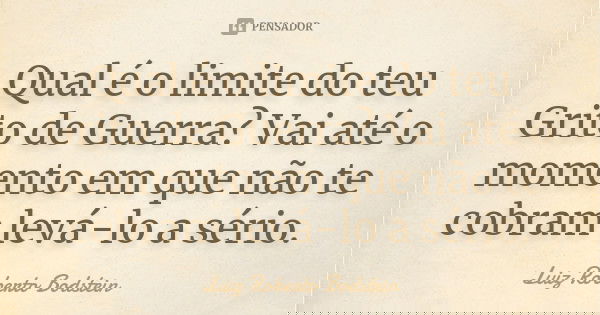 PENSADOR
Qual é o limite do teu
Grito de Guerra? Vai até o
momento em que não te
cobram levá-lo a sério.
Luiz Roberto Bodstein